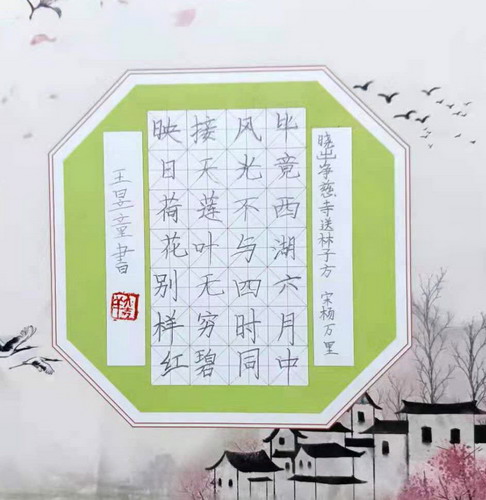 晓出净慈寺送林子方 宋杨万里
毕竟西湖六月中
风光不与四时同
接天莲叶无穷碧
映日荷花别样红
王昱童書